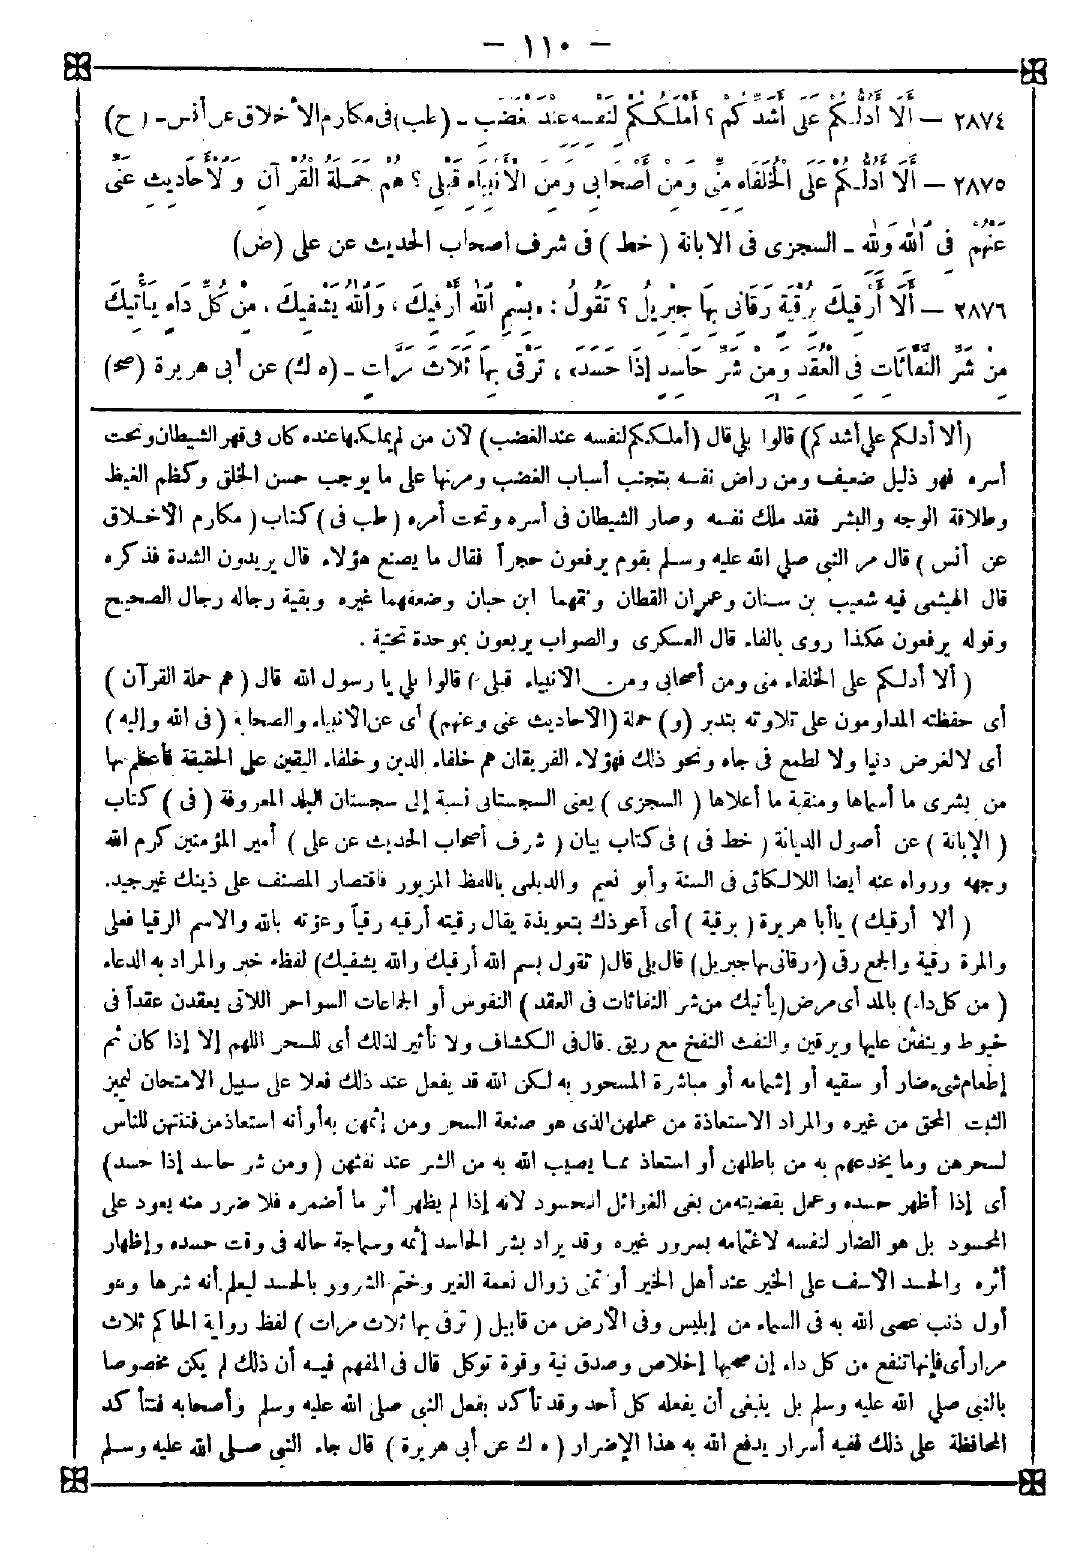 – ١١٠ –
٢٨٧٤ – أَلَا أَدُلُّكُمْ عَلَى أَشَدِّكُمْ ؟ أَمْلَكُكُمْ لِنَفْسِهِ عِنْدَ غَضَبِ – (طب) فى مكارم الأخلاق عن أنس – (ح)
٢٨٧٥ – أَلَا أَدُلُّكُمْ عَلَى الْخُلَفَاءِ مِنِّى وَمِنْ أَصْحَابِى وَمِنَ الْأَنْبِيَاءِ قَبْلِى ؟ هُمْ حَمَلَةُ الْقُرْآنِ وَلْأَحَادِيثِ عَنِّى
عَنْهُمْ فِى اللهِ وَلِلهِ – السجزى فى الابانة ( خط ) فى شرف اصحاب الحديث عن على (ض)
٢٨٧٦ – أَلَا أَرْقِيكَ بِرُقْيَةٍ رَقَانِى بِهَا جِبْرِيلُ ؟ تَقُولُ : «بِسْمِ اللهِ أَرْقِيكَ ، وَاللهُ يَشْفِيكَ ، مِنْ كُلِّ دَاءٍ يَأْتِيكَ
مِنْ شَرِّ النَّفَّاثَاتِ فِى الْعُقَدِ وَمِنْ شَرِّ حَاسِدٍ إِذَا حَسَدَ» ، تَرْقِى بِهَا ثَلَاثَ مَرَّاتٍ – (ه ك) عن أبى هريرة (صح)
(ألا أدلكم على أشدكم) قالوا بلى قال (أملككم لنفسه عند الغضب) لأن من لم يملكها عنده كان فى قهر الشيطان وتحت
أسره فهو ذليل ضعيف ومن راض نفسه بتجنب أسباب الغضب ومرنها على ما يوجب حسن الخلق وكظم الغيظ
وطلاقة الوجه والبشر فقد ملك نفسه وصار الشيطان فى أسره وتحت أمره ( طب فى ) كتاب ( مكارم الأخلاق
عن أنس ) قال مر النبى صلى الله عليه وسلم بقوم يرفعون حجراً فقال ما يصنع هؤلاء قال يريدون الشدة فذكره
قال الهيثمى فيه شعيب بن سنان وعمران القطان وثقهما ابن حبان وضعفهما غيره وبقية رجاله رجال الصحيح
وقوله يرفعون هكذا روى بالفاء قال العسكرى والصواب يربعون بموحدة تحتية .
( ألا أدلكم على الخلفاء منى ومن أصحابى ومن الأنبياء قبلى ) قالوا بلى يا رسول الله قال ( هم حملة القرآن )
أى حفظته المداومون على تلاوته بتدبر (و) حملة (الأحاديث عنى وعنهم) أى عن الأنبياء والصحابة ( فى الله وإليه )
أى لا لغرض دنيا ولا لطمع فى جاه ونحو ذلك فهؤلاء الفريقان هم خلفاء الدين وخلفاء اليقين على الحقيقة فأعظم بها
من بشرى ما أسماها ومنقبة ما أعلاها ( السجزى ) يعنى السجستانى نسبة إلى سجستان البلد المعروفة ( فى ) كتاب
( الإبانة ) عن أصول الديانة ( خط فى ) فى كتاب بيان ( شرف أصحاب الحديث عن على ) أمير المؤمنين كرم الله
وجهه ورواه عنه أيضا اللالكائى فى السنة وأبو نعيم والديلمى باللفظ المزبور فاقتصار المصنف على ذينك غير جيد.
( ألا أرقيك ) يا أبا هريرة ( برقية ) أى أعوذك بتعويذة يقال رقيته أرقيه رقياً وعزته بالله والاسم الرقيا فعلى
والمرة رقية والجمع رقى ( رقانى بها جبريل) قال بلى قال( تقول بسم الله أرقيك والله يشفيك) لفظه خبر والمراد به الدعاء
( من كل داء) بالمد أى مرض(يأتيك من شر النفاثات فى العقد ) النفوس أو الجماعات السواحر اللاتى يعقدن عقداً فى
خيوط وينفثن عليها ويرقين والنفث النفخ مع ريق . قال فى الكشاف ولا تأثير لذلك أى للسحر اللهم إلا إذا كان ثم
إطعام شىء ضار أو سقيه أو إشمامه أو مباشرة المسحور به لكن الله قد يفعل عند ذلك فعلا على سبيل الامتحان ليميز
الثبت المحق من غيره والمراد الاستعاذة من عملهن الذى هو صنعة السحر ومن إثمهن به أو أنه استعاذ من فتنتهن للناس
لسحرهن وما يخدعهم به من باطلهن أو استعاذ مما يصيب الله به من الشر عند نفثهن ( ومن شر حاسد إذا حسد)
أى إذا أظهر حسده وعمل بقضيته من بغى الغوائل المحسود لأنه إذا لم يظهر أثر ما أضمره فلا ضرر منه يعود على
المحسود بل هو الضار لنفسه لاغتمامه بسرور غيره وقد يراد بشر الحاسد إثمه وسماجة حاله فى وقت حسده وإظهار
أثره والحسد الأسف على الخير عند أهل الخير أو تمنى زوال نعمة الغير وختم الشرور بالحسد ليعلم أنه شرها وهو
أول ذنب عصى الله به فى السماء من إبليس وفى الأرض من قابيل ( ترقى بها ثلاث مرات ) لفظ رواية الحاكم ثلاث
مرار أى فإنها تنفع من كل داء إن صحبها إخلاص وصدق نية وقوة توكل قال فى المفهم فيه أن ذلك لم يكن مخصوصا
بالنبى صلى الله عليه وسلم بل ينبغى أن يفعله كل أحد وقد تأكد بفعل النبى صلى الله عليه وسلم وأصحابه فتتأكد
المحافظة على ذلك ففيه أسرار يدفع الله به هذا الإضرار ( ه ك عن أبى هريرة ) قال جاء النبى صلى الله عليه وسلم